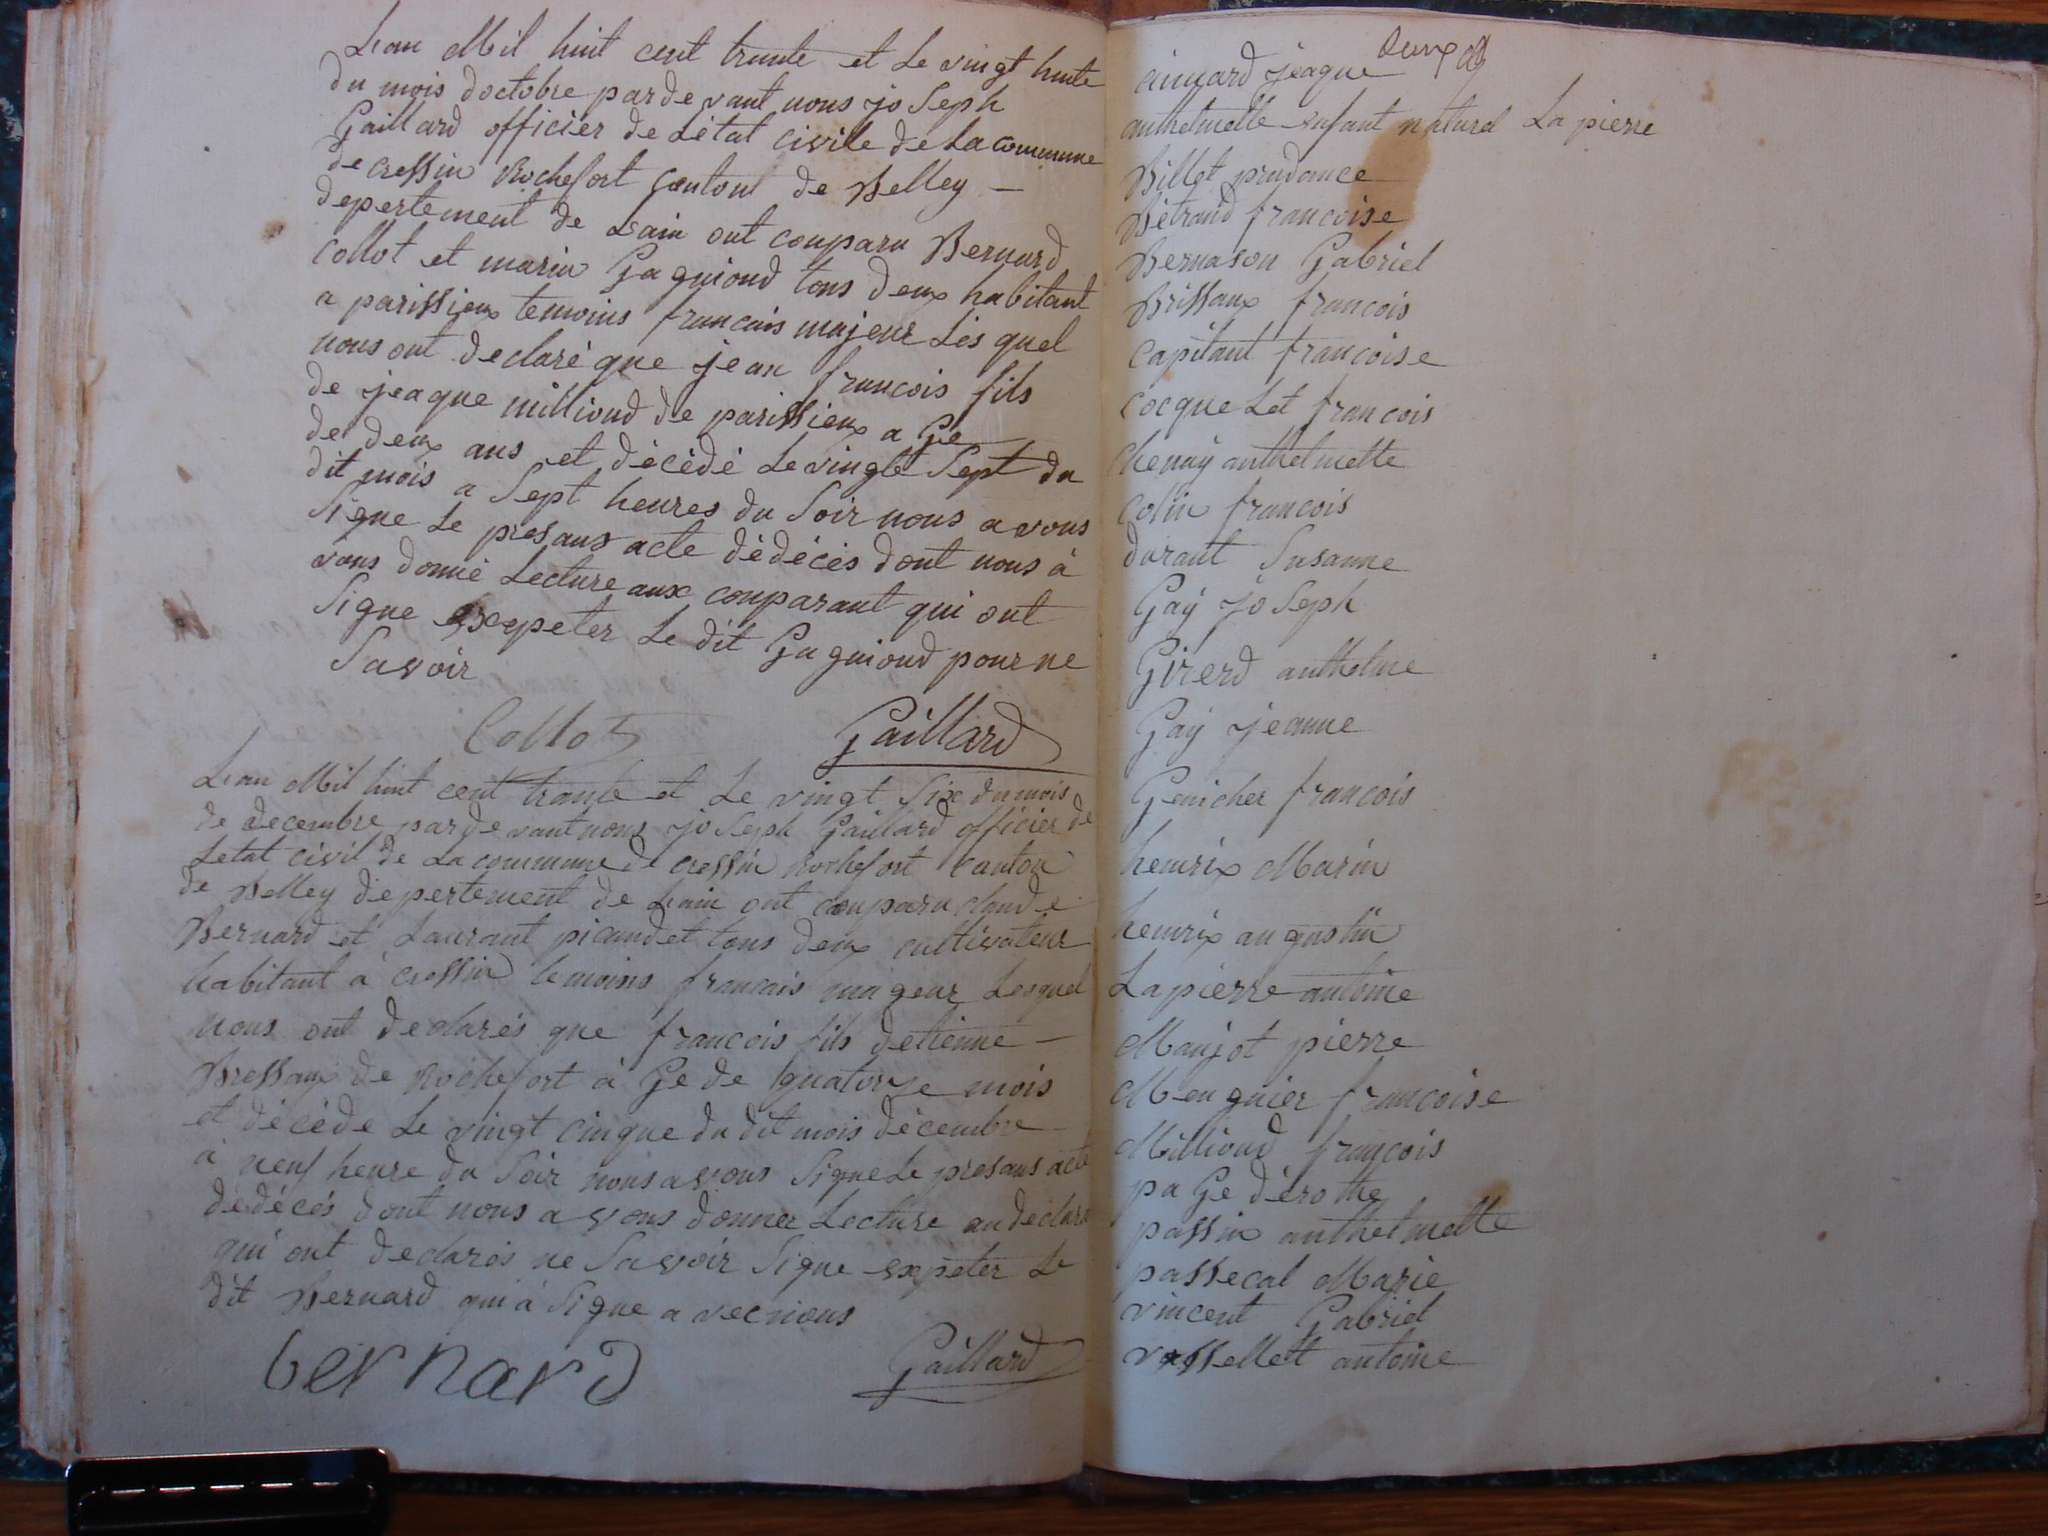 Lan Mil huit cent trante et Le vingt huite
du mois doctobre par de vant nous jo Seph
Gaillard officier de Létat civile de La commune
de cressin Rochefort Contont de Belley —
depertement de Lain ont conparu Bernard
Collot et marin Ga gniond tous deux habitant
a parissieux temoins francais majeur Les quel
nous ont declaré que jean francois fils
de jeaque milliond de parissieux a Ge
de deux ans et décédé Le vingt Sept du
dit mois a Sept heures du Soir nous a vons
Signe Le presans acte dédécès dont nous à
vons donné Lecture aux conparant qui ont
Signe exepeter Le dit Ga gniond pour ne
Savoir
Collot Gaillard
Lan Mil huit cent trante et Le vingt Six du mois
de decembre par de vant nous jo Seph Gaillard officier de
Letat civil de La commune de cressin Rochefort Canton
de Belley depertement de Lain ont conparu claude
Bernard et Laurant picandet tous deux cultivateur
habitant à cressin temoins francais mageur Lesquel
nous ont declarés que francois fils detienne —
Bressaux de Rochefort à Ge de quatorze mois
et décéde Le vingt cinque du dit mois décembre
à neuf heure du Soir nous avons Signe Le presans acte
dédécés dont nous a vons donner Lecture au declara
qui ont declarés ne Savoir Signe expeter Le
dit Bernard qui à Signe a vec nous
bernard Gaillard
deux
aimard jeaque
anthelmette enfant naturel La pierre
Billet prudance
Bétrand francoise
Bernason Gabriel
Brissaux francois
Capitant francoise
Cocque Let francois
Chenay anthelmette
Colin francois
durant Susanne
Gaÿ jo Seph
Girerd anthelme
Gaÿ jeanne
Genicher francois
henrix Marin
henrix augustin
Lapierre antoine
Manjot pierre
Meu gnier francoise
Milliond francois
pa Ge dérothe
passin anthelmette
passecal Marie
vincent Gabriel
vassellett antoine